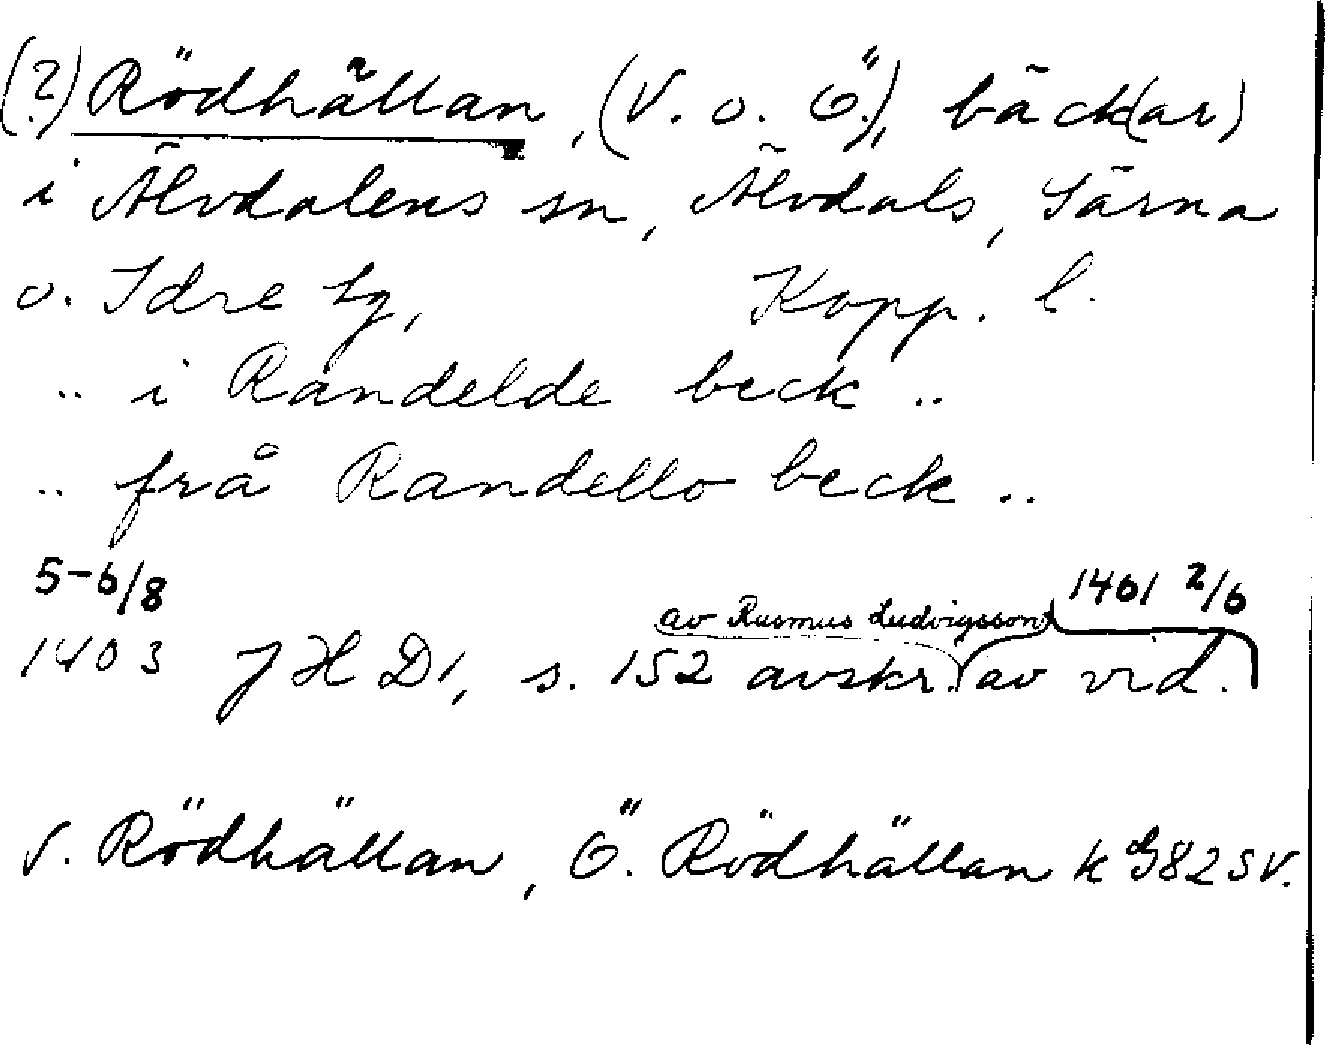 (?) Rödhällan, (V. o. Ö.), bäck(ar)
i Älvdalens sn, Älvdals, Särna
o. Idre tg, Kopp. l.
.. i Randelde beck ..
.. frå Randello beck ..
5-6/8 1461 2/6
av Rusmus Ludvigsson
1403 JHD1, s. 152 avskr. av vid.
V. Rödhällan, Ö. Rödhällan k G82SV.